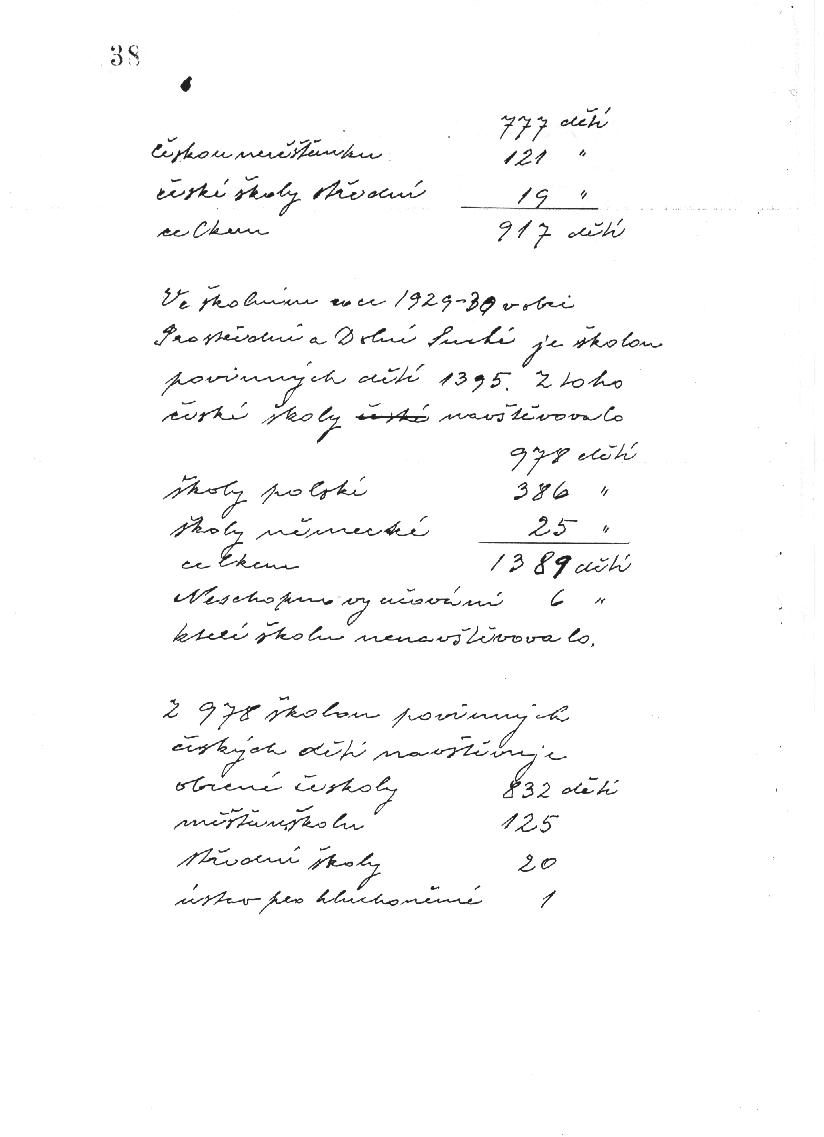 38
777 dětí
českou měšťanku 121 "
české školy střední 19 "
celkem 917 dětí
Ve školním roce 1929-30 v obci
Prostřední a Dolní Suché je školou
povinných dětí 1395. Z toho
české školy české navštěvovalo
978 dětí
školy polské 386 "
školy německé 25 "
celkem 1389 dětí
Neschopno vyučování 6 "
kteří školu nenavštěvovalo.
Z 978 školou povinných
českých dětí navštěvuje
obecné č školy 832 dětí
měšťan. školu 125
střední školy 20
ústav pro hluchoněmé 1